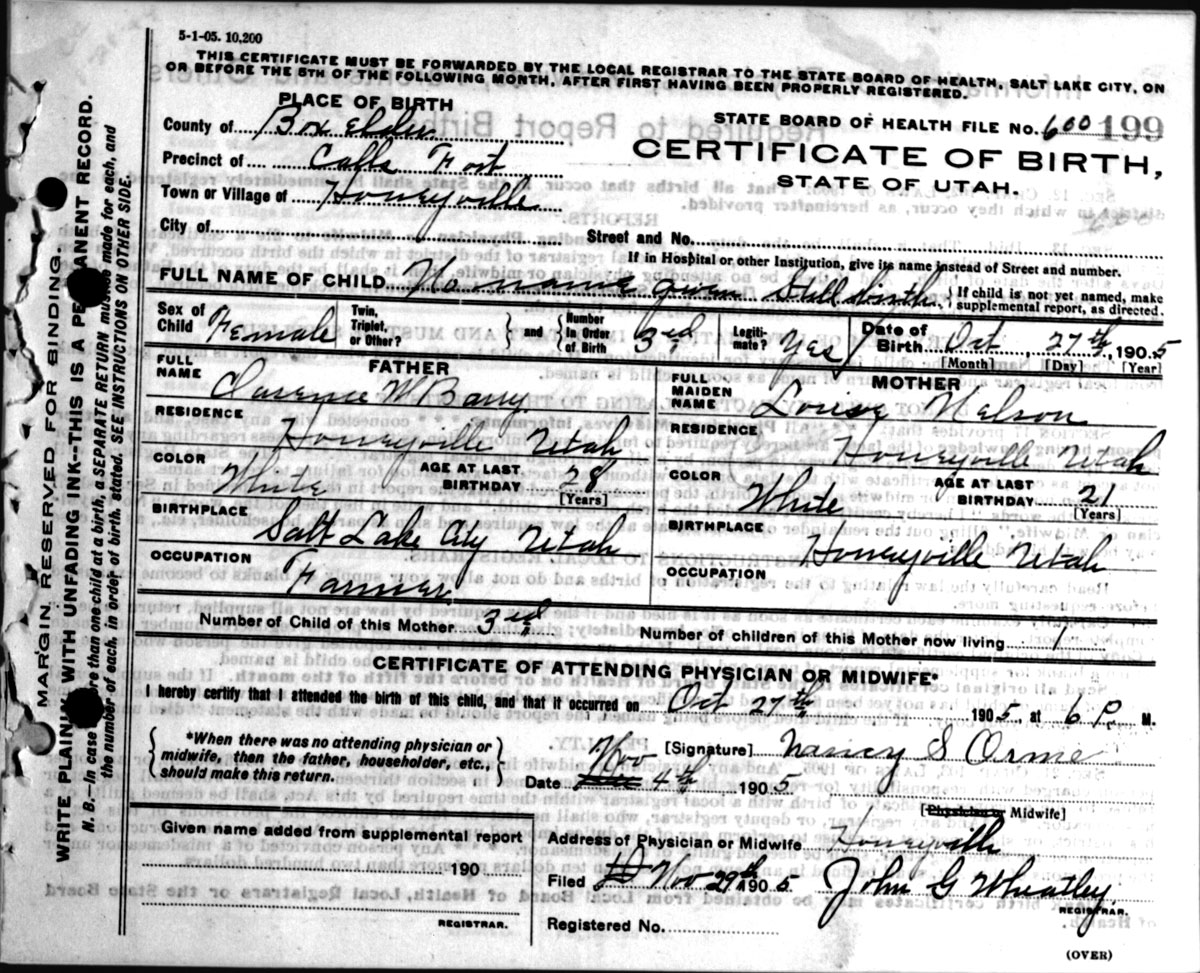 5-1-05. 10,200
THIS CERTIFICATE MUST BE FORWARDED BY THE LOCAL REGISTRAR TO THE STATE BOARD OF HEALTH, SALT LAKE CITY, ON
OR BEFORE THE 5TH OF THE FOLLOWING MONTH, AFTER FIRST HAVING BEEN PROPERLY REGISTERED.
PLACE OF BIRTH
STATE BOARD OF HEALTH FILE No. 600 199
County of Box Elder
CERTIFICATE OF BIRTH,
Precinct of Calls Fort
STATE OF UTAH.
Town or Village of Honeyville
City of
Street and No.
If in Hospital or other Institution, give its name instead of Street and number.
FULL NAME OF CHILD No name given Still birth { If child is not yet named, make supplemental report, as directed.
Sex of Child Female Twin, Triplet, or Other? } and { Number In Order of Birth 3rd Legiti- mate? Yes Date of Birth Oct, 27th, 1905
[Month] [Day] [Year]
FATHER MOTHER
FULL NAME Clarence W Barry FULL MAIDEN NAME Louise Nelson
RESIDENCE Honeyville Utah RESIDENCE Honeyville Utah
COLOR White AGE AT LAST BIRTHDAY 28 [Years] COLOR White AGE AT LAST BIRTHDAY 21 [Years]
BIRTHPLACE Salt Lake City Utah BIRTHPLACE Honeyville Utah
OCCUPATION Farmer OCCUPATION
Number of Child of this Mother 3rd Number of children of this Mother now living 1
CERTIFICATE OF ATTENDING PHYSICIAN OR MIDWIFE*
I hereby certify that I attended the birth of this child, and that it occurred on Oct 27th 1905, at 6 P. M.
{ *When there was no attending physician or midwife, then the father, householder, etc., should make this return. }
[Signature] Nancy S Orme
Date Nov 4th 1905
[Physician or Midwife]
Given name added from supplemental report
190
REGISTRAR.
Address of Physician or Midwife Honeyville
Filed Nov 29th 1905 John G Wheatley
REGISTRAR.
Registered No.
(OVER)
MARGIN RESERVED FOR BINDING.
WRITE PLAINLY WITH UNFADING INK--THIS IS A PERMANENT RECORD.
N. B.--In case more than one child at a birth, a SEPARATE RETURN must be made for each, and
the number of each, in order of birth, stated. SEE INSTRUCTIONS ON OTHER SIDE.